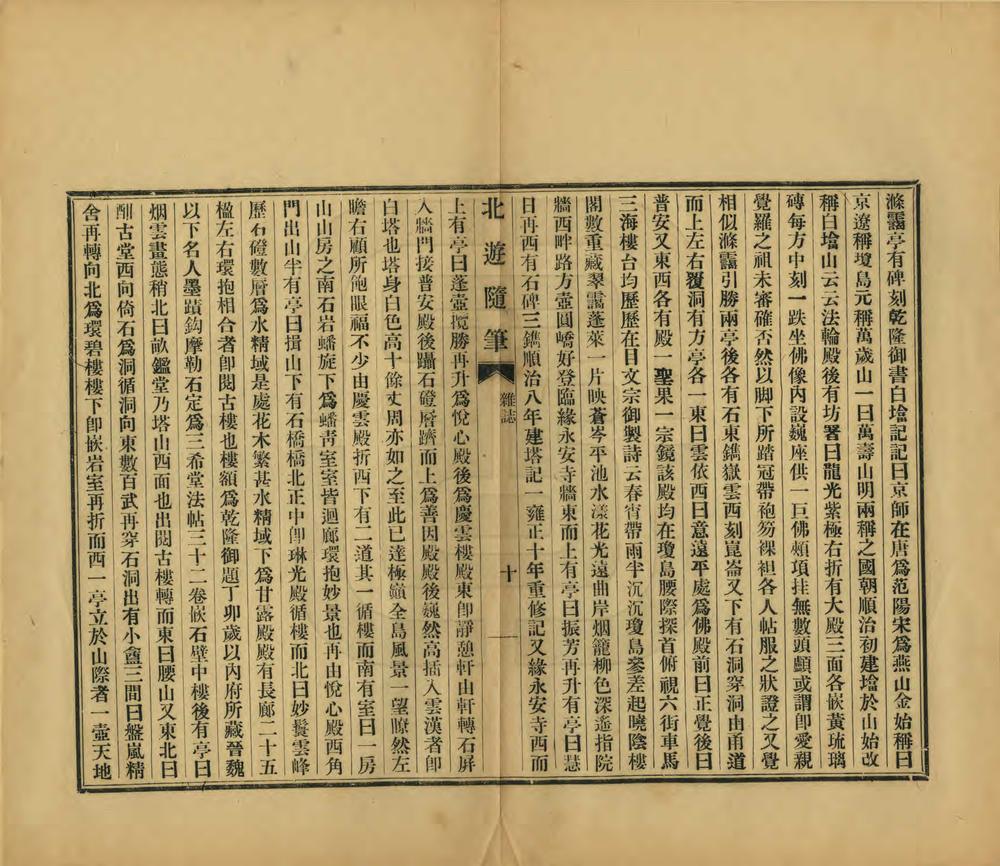 滌靄亭有碑刻乾隆御書白墖記記曰京師在唐爲范陽宋爲燕山金始稱曰
京遼稱瓊島元稱萬歲山一曰萬壽山明兩稱之國朝順治初建墖於山始改
稱白墖山云云法輪殿後有坊署曰龍光紫極右折有大殿三面各嵌黃琉璃
磚每方中刻一趺坐佛像內設巍座供一巨佛頰項挂無數頭顱或謂卽愛親
覺羅之祖未審確否然以脚下所踏冠帶袍笏祼袒各人帖服之狀證之又覺
相似滌靄引勝兩亭後各有石東鐫嶽雲西刻崑崙又下有石洞穿洞由甬道
而上左右覆洞有方亭各一東曰雲依西曰意遠平處爲佛殿前曰正覺後曰
普安又東西各有殿一聖果一宗鏡該殿均在瓊島腰際探首俯視六街車馬
三海樓台均歷歷在目文宗御製詩云春宵帶雨半沉沉瓊島參差起曉陰樓
閣數重藏翠靄蓬萊一片映蒼岑平池水漾花光遠曲岸烟籠柳色深遙指院
牆西畔路方壺圓嶠好登臨緣永安寺牆東而上有亭曰振芳再升有亭曰慧
日再西有石碑三鐫順治八年建塔記一雍正十年重修記又緣永安寺西而
北遊隨筆 雜誌 十
上有亭曰蓬壺攬勝再升爲悅心殿後爲慶雲樓殿東卽靜憩軒由軒轉石屏
入牆門接普安殿後躡石磴層躋而上爲善因殿殿後巍然高插入雲漢者卽
白塔也塔身白色高十餘丈周亦如之至此已達極巓全島風景一望瞭然左
瞻右顧所飽眼福不少由慶雲殿折西下有二道其一循樓而南有室曰一房
山山房之南石岩蟠旋下爲蟠靑室室皆迴廊環抱妙景也再由悅心殿西角
門出山半有亭曰揖山下有石橋橋北正中卽琳光殿循樓而北曰妙鬘雲峰
歷石磴數層爲水精域是處花木繁甚水精域下爲甘露殿殿有長廊二十五
楹左右環抱相合者卽閱古樓也樓額爲乾隆御題丁卯歲以內府所藏晉魏
以下名人墨蹟鈎摩勒石定爲三希堂法帖三十二卷嵌石壁中樓後有亭曰
烟雲畫態稍北曰畝鑑堂乃塔山西面也出閱古樓轉而東曰腰山又東北曰
酣古堂西向倚石爲洞循洞向東數百武再穿石洞出有小盦三間曰盤嵐精
舍再轉向北爲環碧樓樓下卽嵌岩室再折而西一亭立於山際者一壺天地